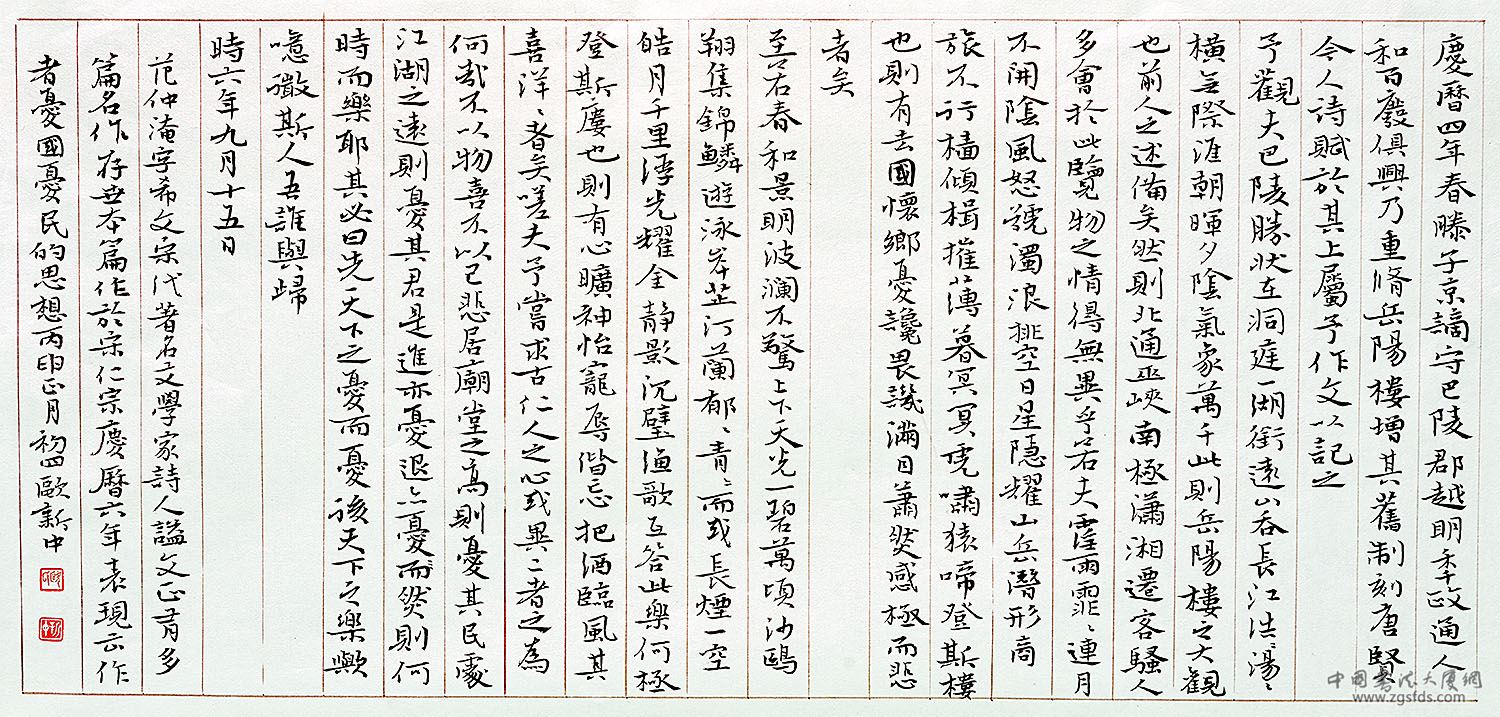 慶曆四年春滕子京謫守巴陵郡越明年政通人
和百廢俱興乃重脩岳陽樓增其舊制刻唐賢
今人詩賦於其上屬予作文以記之
予觀夫巴陵勝狀在洞庭一湖銜遠山吞長江浩湯〻
橫無際涯朝暉夕陰氣象萬千此則岳陽樓之大觀
也前人之述備矣然則北通巫峽南極瀟湘遷客騷人
多會於此覽物之情得無異乎若夫霪雨霏〻連月
不開陰風怒號濁浪排空日星隱耀山岳潛形商
旅不行檣傾楫摧薄暮冥冥虎嘯猿啼登斯樓
也則有去國懷鄉憂讒畏譏滿目蕭然感極而悲
者矣
至若春和景明波瀾不驚上下天光一碧萬頃沙鷗
翔集錦鱗遊泳岸芷汀蘭郁〻青〻而或長煙一空
皓月千里浮光耀金靜影沉璧漁歌互答此樂何極
登斯樓也則有心曠神怡寵辱偕忘把酒臨風其
喜洋〻者矣嗟夫予嘗求古仁人之心或異二者之為
何哉不以物喜不以己悲居廟堂之高則憂其民處
江湖之遠則憂其君是進亦憂退亦憂而然則何
時而樂耶其必曰先天下之憂而憂後天下之樂歟
噫微斯人吾誰與歸
時六年九月十五日
范仲淹字希文宋代著名文學家詩人謚文正有多
篇名作存世本篇作於宋仁宗慶曆六年表現云作
者憂國憂民的思想丙申正月初四歐新中
中國書法大廈網
www.zgsfds.com